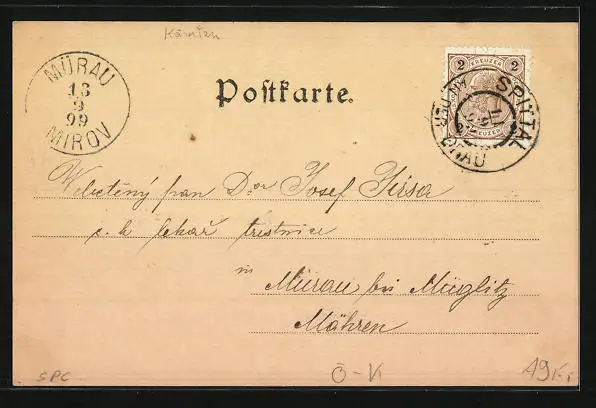 Kärnten
MÜRAU
13
9
99
MIROV
Postkarte.
2 KREUZER 2
KREUZER
SPITTAL
DRAU
Velectěný pan Dor Josef Jirsa
c. k lekař trestnice
in
Mürau bei Müglitz
Mähren
SPC
Ö-K